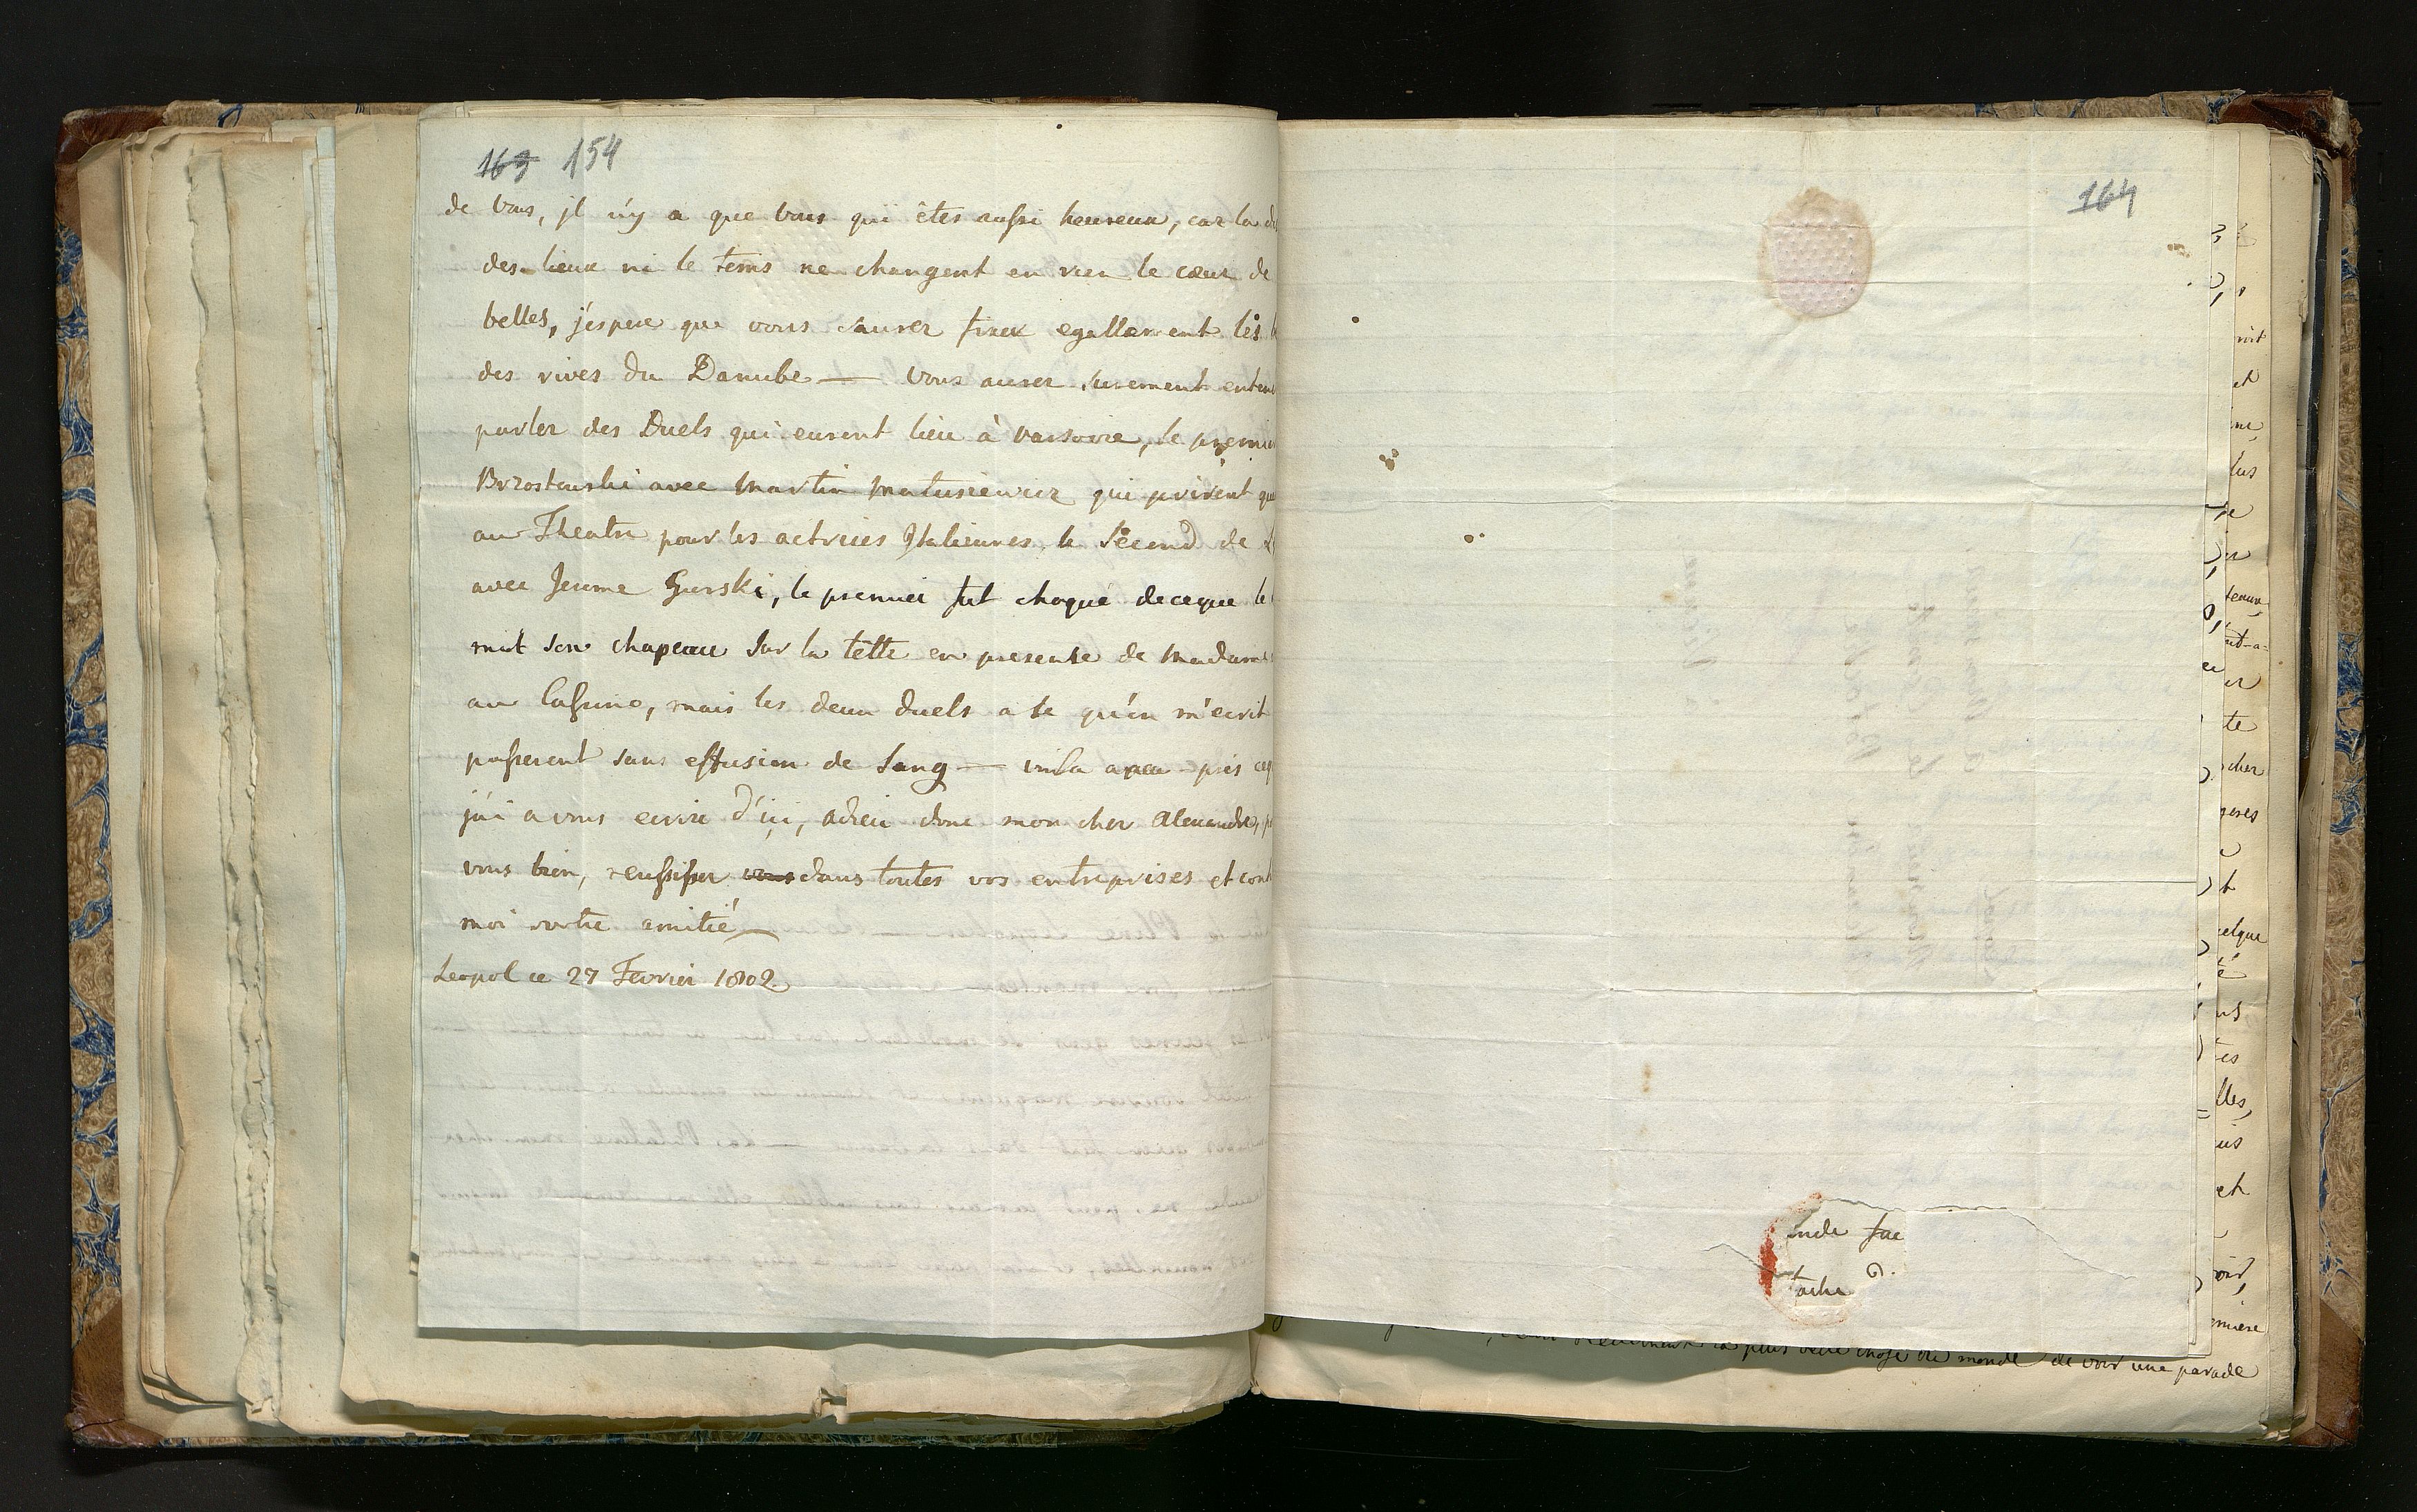 163 154
de Vous, jl n'y a que Vous qui êtes aussi heureux, car la
des lieux ni le tems ne changent en rien le cœur de
belles, j'espere que vous saurez fixer egallement les
des rives du Danube — Vous aurez surement enten
parler des Duels qui eurent lieu à Varsovie, le premier
Brzostowski avec Martin Matusiewicz qui prirent que
au Theatre pour les actrices Italiennes, le Second de
avec Jerome Gurski, le premier fut choqué deceque le
mit son chapeau sur la tette en presente de Madame
au Cassino, mais les deux duels a se qu'on m'ecrit
passerent sans effusion de Sang — voila apeu près ceq
j'ai a vous ecrire d'ici, adieu donc mon cher Alexandre,
vous bien, reussisser vous dans toutes vos entreprises et cont
moi votre amitié
Leopol ce 27 Fevrier 1802
164
tache
plus belle chose du monde de voir une parade